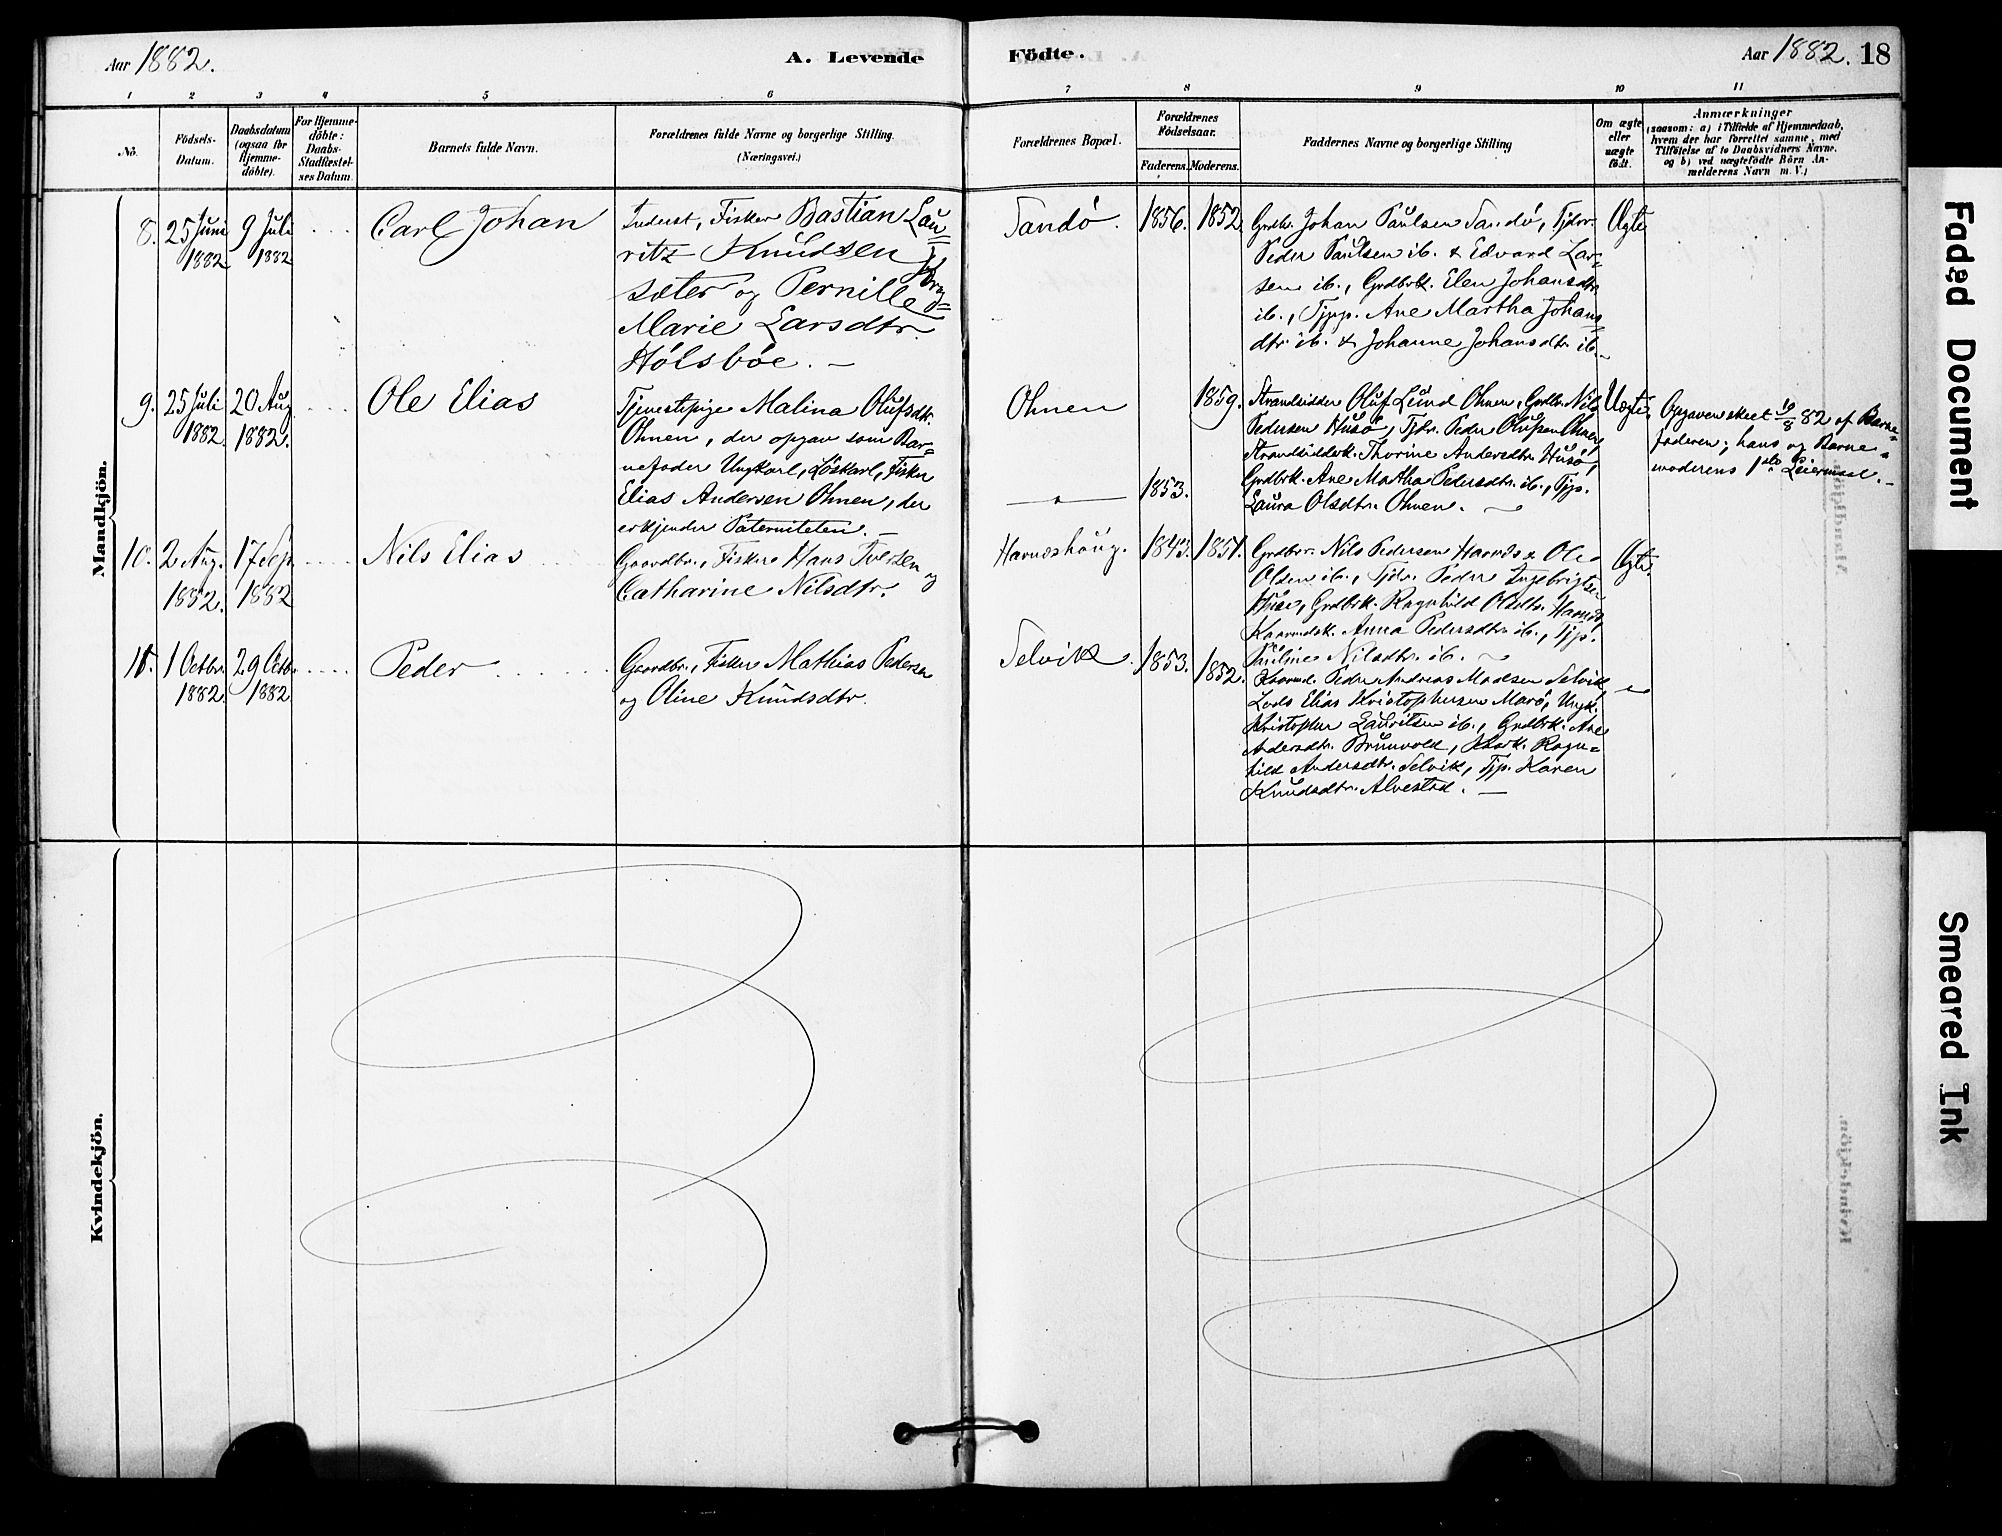 Aar 1882.
A. Levende
Födte.
Aar 1882. 18
1 2 3 4 5 6 7 8 9 10 11
No.
Födsels-
Datum.
Daabsdatum
(ogsaa for
Hjemme-
döbte).
For Hjemme-
döbte:
Daabs-
Stadfæstel-
ses Datum.
Barnets fulde Navn.
Forældrenes fulde Navne og borgerlige Stilling.
(Næringsvei.)
Forældrenes Bopæl.
Forældrenes
Födselsaar.
Faderens. Moderens.
Faddernes Navne og borgerlige Stilling
Om ægte
eller
uægte
födt.
Anmærkninger
(saasom: a) i Tilfælde af Hjemmedaab,
hvem der har forrettet samme, med
Tilföielse af to Daabsvidners Navne.
og b) ved uægtefödte Börn An-
melderens Navn m. V.)
Mandkjön.
8.
25 Juni
1882
9 Juli
1882
Carl Johan
Inderst, Fisker Bastian Lau=
ritz Knudsen
sæter og Pernille
Marie Larsdtr.
Hølsbøe. —
Sandø.
1856. 1852.
Grdbr. Johan Paulsen Sandø, Tjdr.
Peder Paulsen ib. & Edvard Lar=
sen ib., Grdbrk. Elen Johansdtr.
ib., Tjpp. Ane Martha Johans
dtr. ib. & Johanne Johansdtr. ib.
Ægte
9.
25 Juli
1882.
20 Aug
1882.
Ole Elias
Tjenestepige Malina Olufsdtr.
Ohnen, der opgav som Bar=
nefader Ungkarl, Løskarl, Fisker
Elias Andersen Ohnen, der
erkjender Paterniteten. —
Ohnen
1859.
1853.
Strandsidder Oluf Lund Ohnen, Grdbr. Nils
Pedersen Husø, Tjdr. Peder Olufsen Ohnen,
Strandsidderk. Thorine Andersdtr. Husø,
Grdbrk. Ane Martha Pedersdtr. ib., Tjp.
Laura Olsdtr. Ohnen.
Uægte.
Opgaven skeet 10/8 82 af Barne=
faderen; hans og Barne=
moderens 1ste Leiermaal. —
10.
2 Aug.
1882.
17 Sep.
1882
Nils Elias
Gaardbr., Fisker Hans Iversen og
Catharine Nilsdtr.
Havnøshaug.
1843. 1851.
Grdbr. Nils Pedersen Havnø & Ole
Olsen ib., Tjdr. Peder Ingebrigtsen
Husø, Grdbrk. Ragnhild Olsdtr. Havnø,
Kaarmdsk. Anna Pedersdtr. ib., Tjp.
Pauline Nilsdtr. ib.
Ægte.
11.
1 Octbr.
1882.
29 Octbr.
1882
Peder
Gaardbr., Fisker Mathias Pedersen
og Oline Knudsdtr.
Selvik.
1853. 1852.
Kaarmd. Peder Andreas Madsen Selvik
Lods Elias Kristophersen Marø, Ungk.
Kristopher Lauritsen ib., Grdbrk. Ane
Andersdtr. Brunvold, Kaark. Ragn=
hild Andersdtr. Selvik, Tjp. Karen
Knudsdtr. Alvestad. —
Kvindekjön.
Faded Document
Smeared Ink